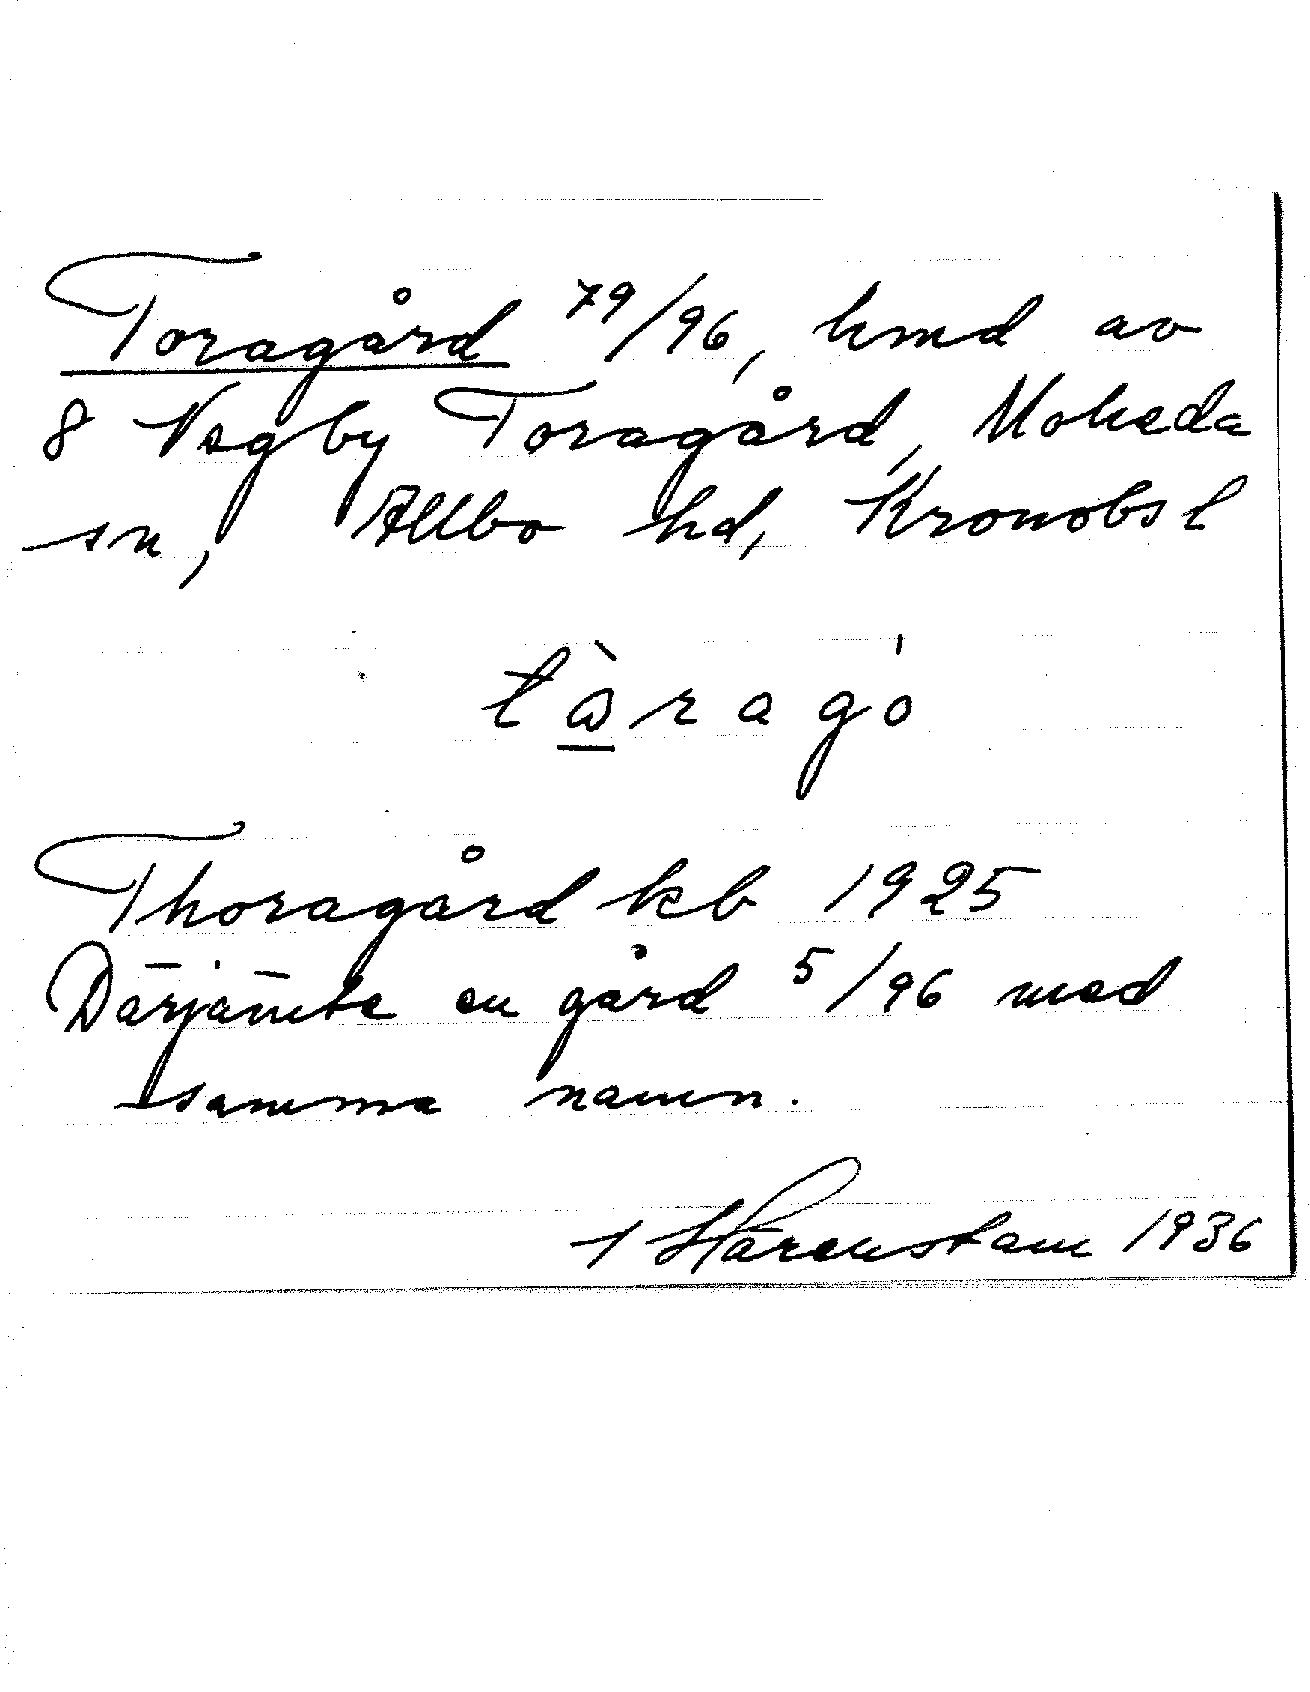 Toragård 79/96, hmd av
8 Vegby Toragård, Moheda
sn, Allbo hd, Kronobs l
tàragó
Thoragård kb 1925
Därjämte en gård 5/96 med
samma namn.
Härenstam 1936